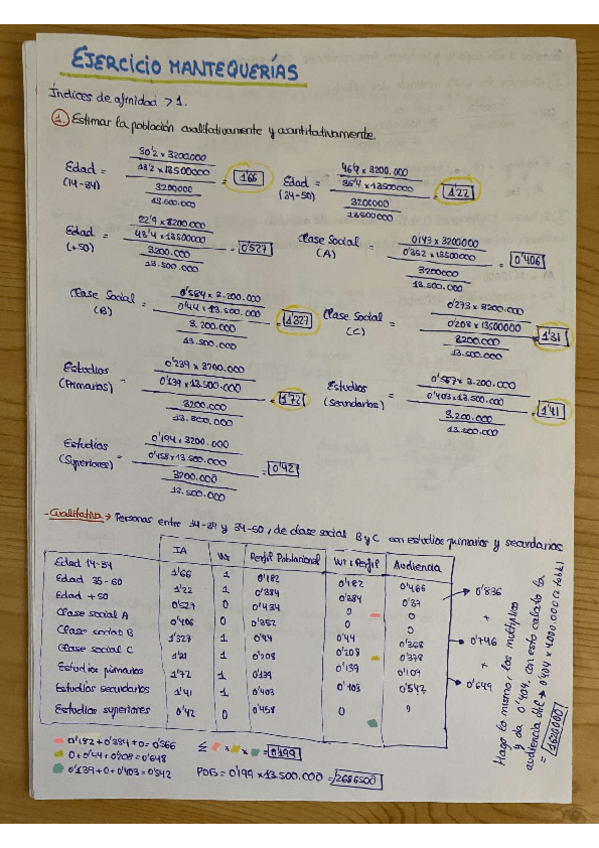 EJERCICIO MANTEQUERÍAS
Índices de afinidad > 1.
1. Estimar la población cualitativamente y cuantitativamente.
Edad (14-34) = 30'2 x 3200.000 / 18'2 x 13500000 / 3200000 / 13.500.000 = 1'66
Edad (34-50) = 46'9 x 3200.000 / 38'4 x 13500000 / 3200000 / 13500.000 = 1'22
Edad (+50) = 22'9 x 3200000 / 43'4 x 13500000 / 3200.000 / 13.500.000 = 0'527
Clase Social (A) = 0'143 x 3200000 / 0'352 x 13500000 / 3200000 / 13.500.000 = 0'406
Clase Social (B) = 0'584 x 3.200.000 / 0'44 x 13.500.000 / 3.200.000 / 13.500.000 = 1'327
Clase Social (C) = 0'273 x 3200000 / 0'208 x 13500000 / 3200.000 / 13.500.000 = 1'31
Estudios (Primarios) = 0'239 x 3200.000 / 0'139 x 13500.000 / 3200.000 / 13.500.000 = 1'72
Estudios (secundarios) = 0'567 x 3.200.000 / 0'403 x 13.500.000 / 3.200.000 / 13.500.000 = 1'41
Estudios (Superiores) = 0'194 x 3200.000 / 0'458 x 13.500.000 / 3200.000 / 13.500.000 = 0'42
- Cualitativa → Personas entre 14-34 y 34-50, de clase social B y C con estudios primarios y secundarios
IA Wi Perfil Poblacional Wi x Perfil Audiencia
Edad 14-34 1'66 1 0'182 0'182 0'466
Edad 35-50 1'22 1 0'384 0'384 0'37
Edad +50 0'527 0 0'434 0 0
Clase social A 0'406 0 0'352 0 0
Clase social B 1'327 1 0'44 0'44 0'368
Clase social C 1'31 1 0'208 0'208 0'378
Estudios primarios 1'72 1 0'139 0'139 0'109
Estudios secundarios 1'41 1 0'403 0'403 0'543
Estudios superiores 0'42 0 0'458 0 0
→ 0'836
+
→ 0'746
+
→ 0'649
Hago lo mismo, los multiplico
y da 0'404, con esto calculo la
= 1620000
0'182+0'384+0=0'566
0+0'44+0'208=0'648
0'139+0+0'403=0'542
x x = 0'199
POB = 0'199 x 13.500.000 = 2686500